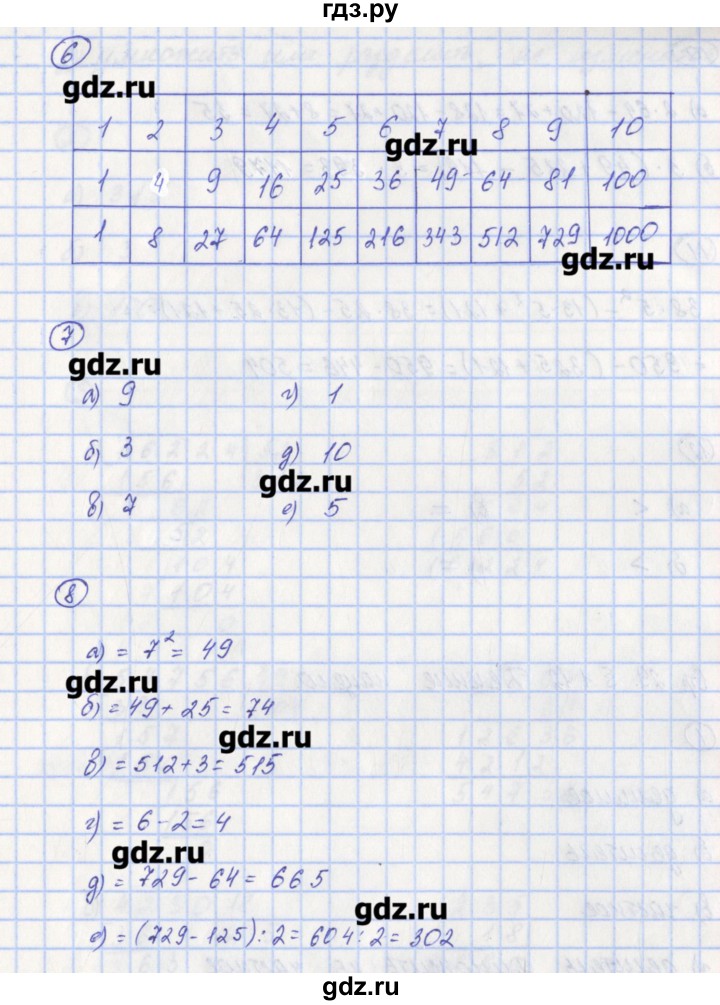 гдз.ру
6
gdz.ru
1 2 3 4 5 6 7 8 9 10
gdz.ru
1 4 9 16 25 36 49 64 81 100
1 8 27 64 125 216 343 512 729 1000
gdz.ru
7
gdz.ru
а) 9 г) 1
б) 3 д) 10
gdz.ru
в) 7 е) 5
8
а) = 7² = 49
gdz.ru
б) = 49 + 25 = 74
gdz.ru
в) = 512 + 3 = 515
г) = 6 - 2 = 4
gdz.ru
д) = 729 - 64 = 665
gdz.ru
е) = (729 - 125) : 2 = 604 : 2 = 302
gdz.ru